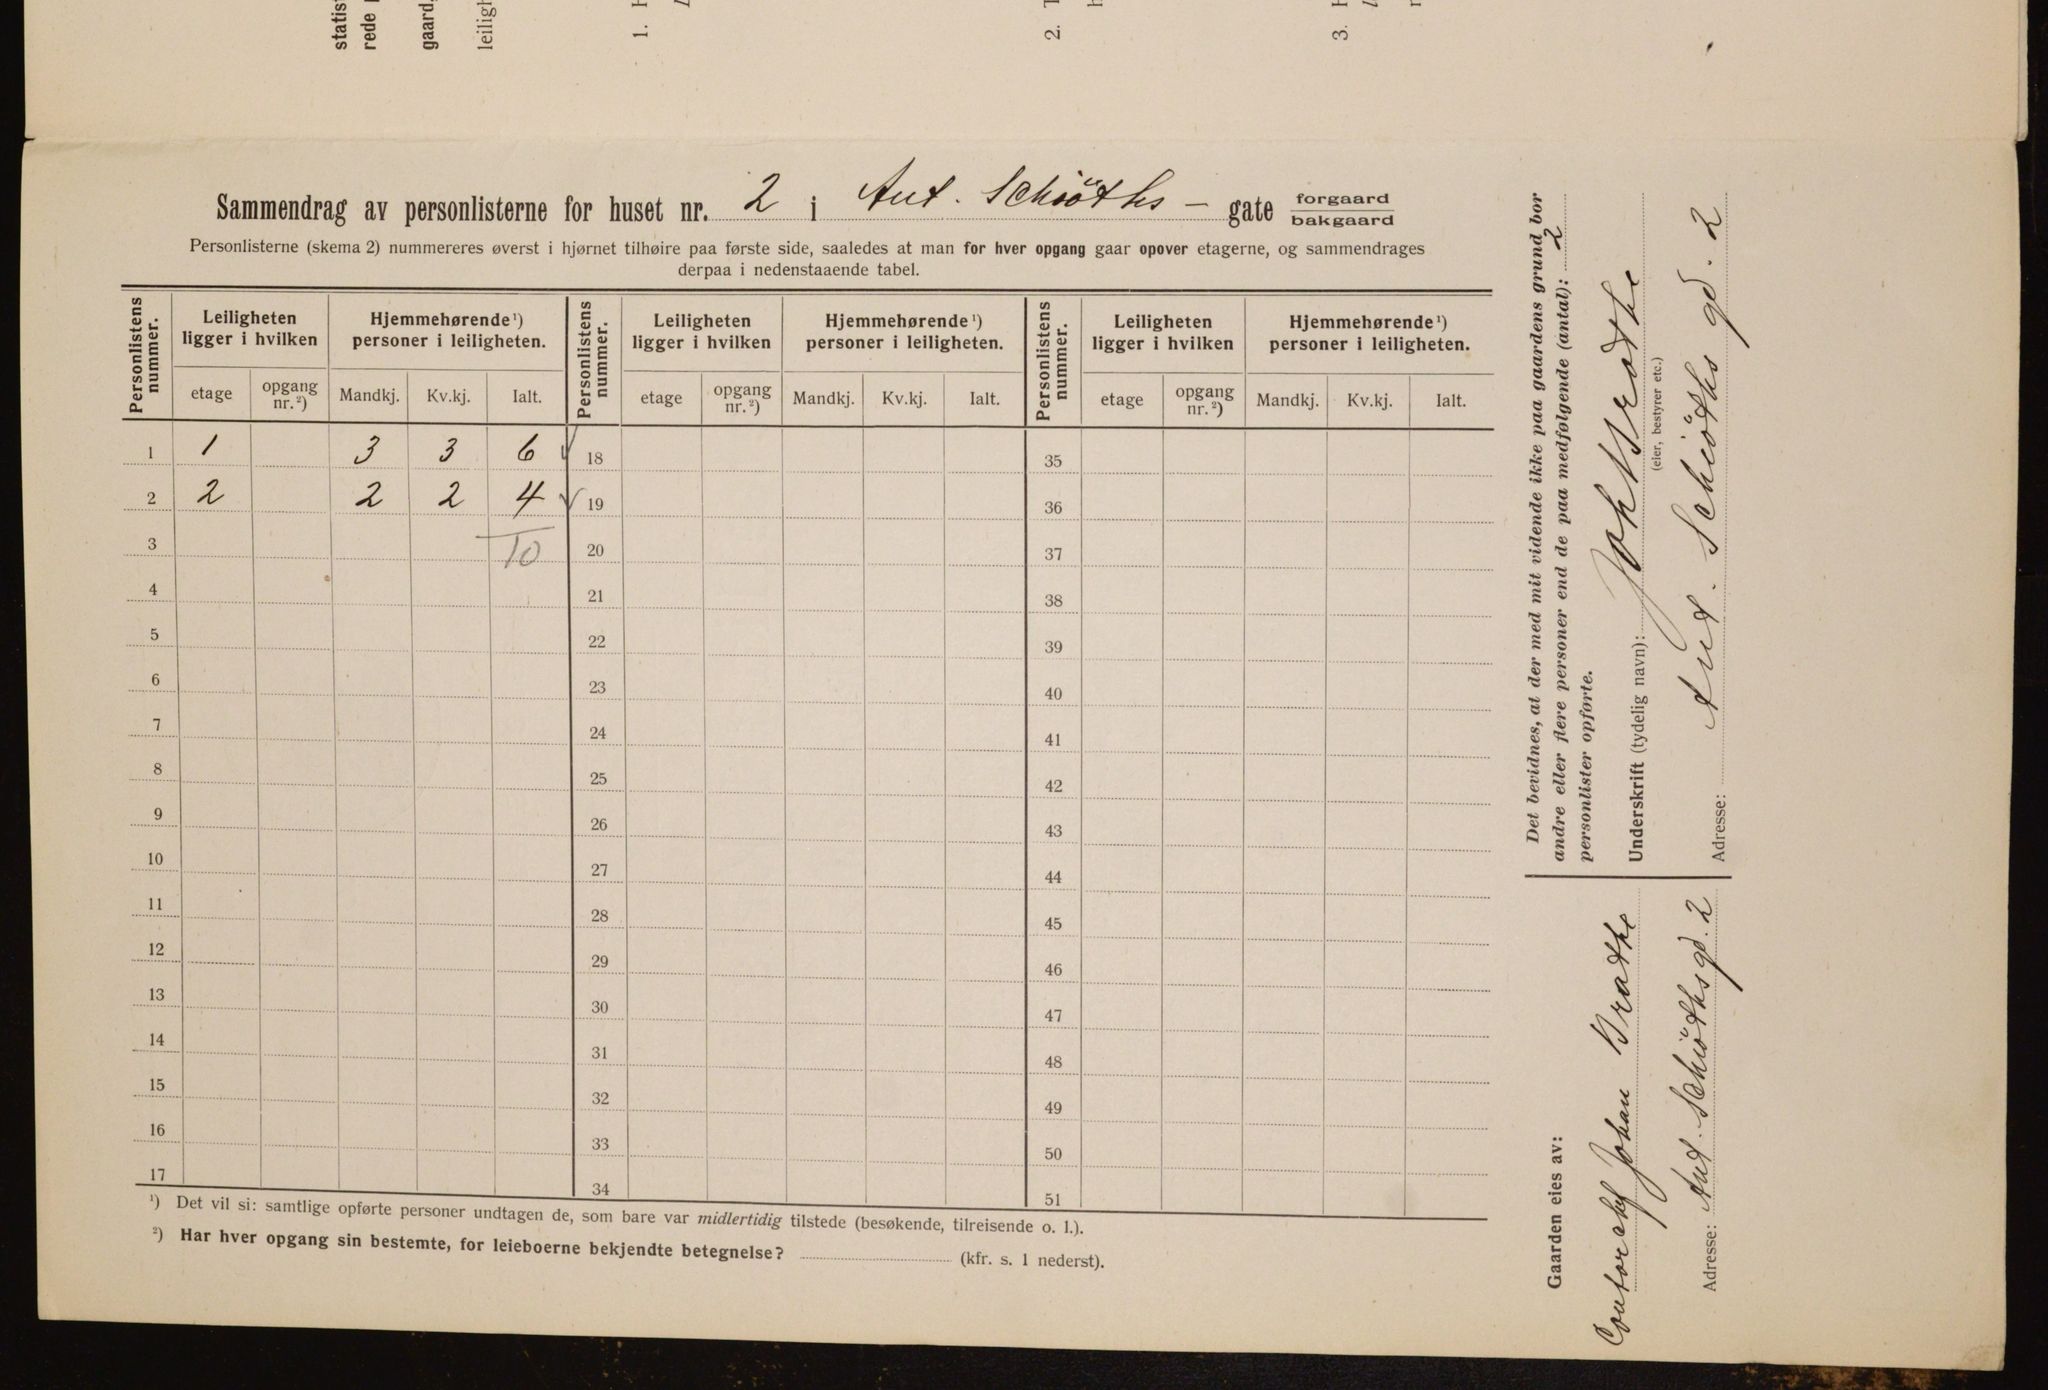 statis
rede
gaard
leiligh
1. H
2. T
3. H
Sammendrag av personlisterne for huset nr. 2 i Ant. Schiöths - gate forgaard
bakgaard
Personlisterne (skema 2) nummereres øverst i hjørnet tilhøire paa første side, saaledes at man for hver opgang gaar opover etagerne, og sammendrages
derpaa i nedenstaaende tabel.
Personlistens nummer. Leiligheten ligger i hvilken Hjemmehørende ¹) personer i leiligheten. Personlistens nummer. Leiligheten ligger i hvilken Hjemmehørende ¹) personer i leiligheten. Personlistens nummer. Leiligheten ligger i hvilken Hjemmehørende ¹) personer i leiligheten.
etage opgang nr. ²) Mandkj. Kv.kj. Ialt. etage opgang nr. ²) Mandkj. Kv.kj. Ialt. etage opgang nr. ²) Mandkj. Kv.kj. Ialt.
1 1 3 3 6 √ 18 35
2 2 2 2 4 √ 19 36
3 10 20 37
4 21 38
5 22 39
6 23 40
7 24 41
8 25 42
9 26 43
10 27 44
11 28 45
12 29 46
13 30 47
14 31 48
15 32 49
16 33 50
17 34 51
¹) Det vil si: samtlige opførte personer undtagen de, som bare var midlertidig tilstede (besøkende, tilreisende o. l.).
²) Har hver opgang sin bestemte, for leieboerne bekjendte betegnelse? (kfr. s. 1 nederst).
Det bevidnes, at der med mit vidende ikke paa gaardens grund bor
andre eller flere personer end de paa medfølgende (antal): 2
personlister opførte.
Underskrift (tydelig navn): Joh Bratke
(eier, bestyrer etc.)
Adresse: Ant. Schiöths gd. 2
Gaarden eies av:
Johan Bratke
Adresse: Ant. Schiöths gd. 2